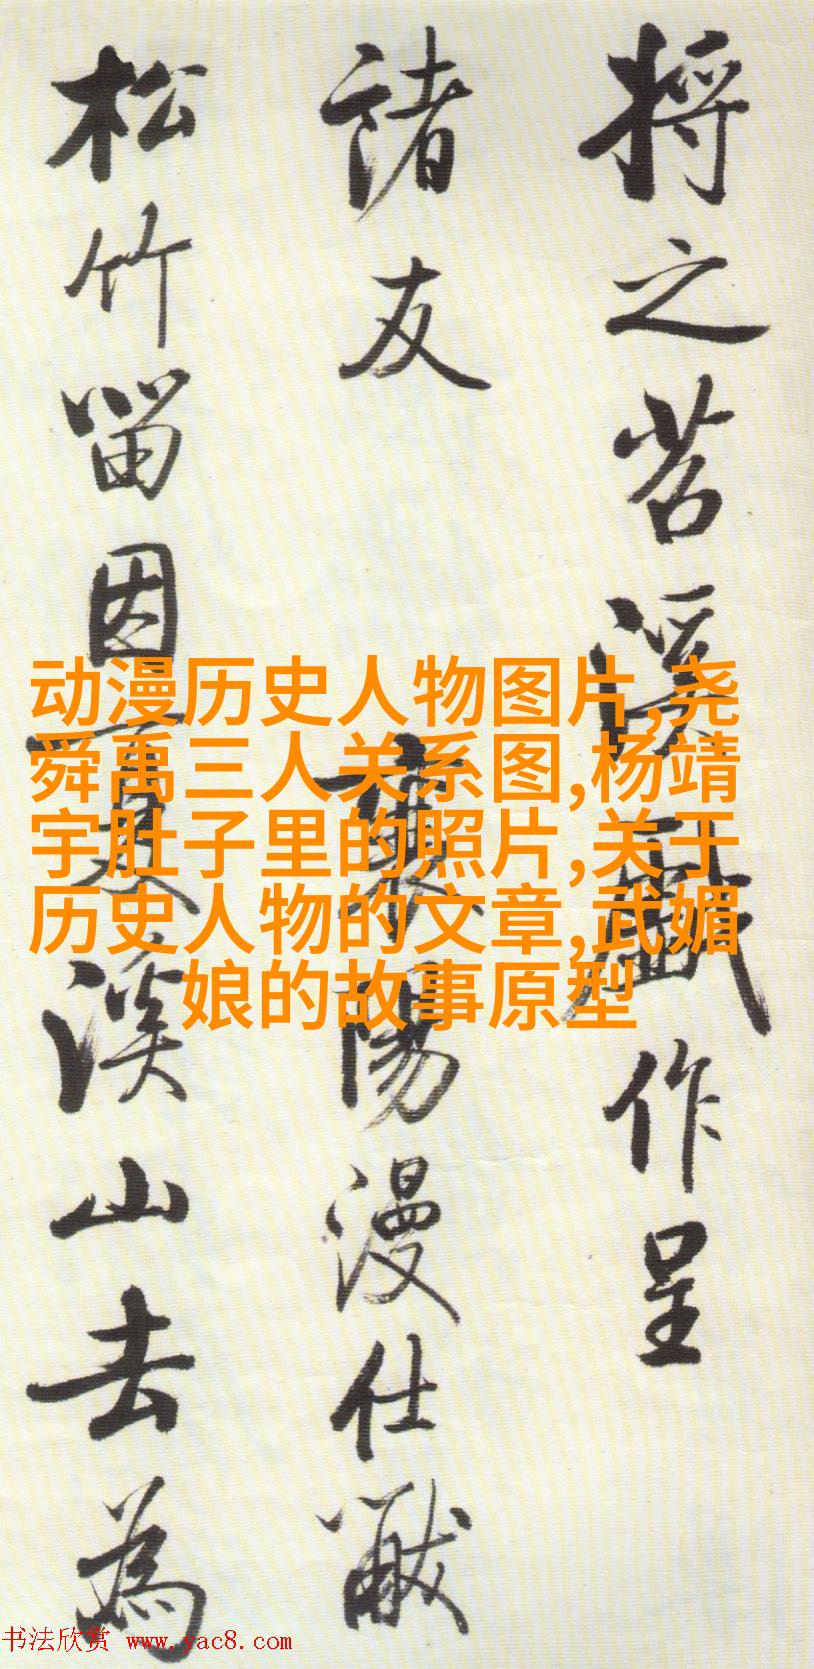 将之苕溪戲作呈
諸友 襄陽漫仕黻
松竹留因夏溪山去為
动漫历史人物图片,尧
舜禹三人关系图,杨靖
宇肚子里的照片,关于
历史人物的文章,武媚
娘的故事原型
书法欣赏 www.yac8.com